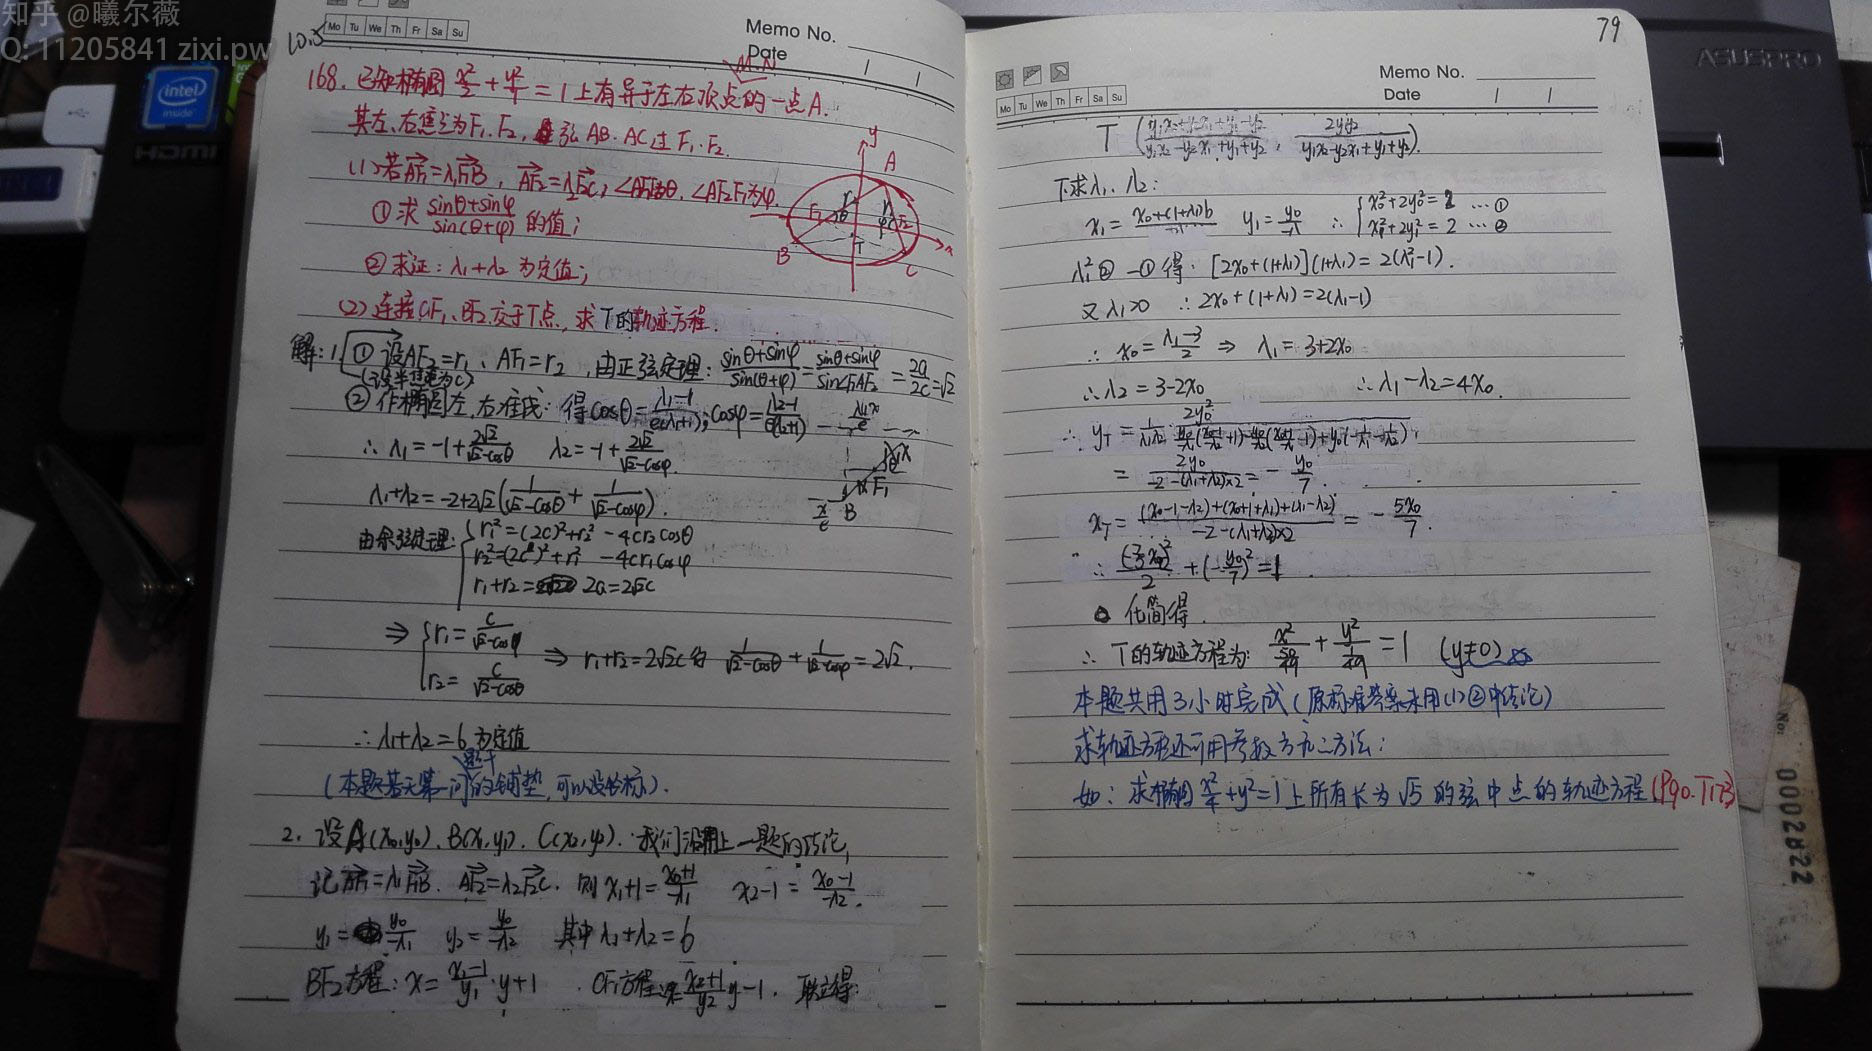 知乎 @曦尔薇
Q: 11205841 zixi.pw
intel
inside
HDMI
10.5
Mo Tu We Th Fr Sa Su
Memo No.
Date
168. 已知椭圆 x²/2 + y²/1 = 1 上有异于左右顶点的一点A.
其左、右焦点为F₁、F₂, 弦AB、AC过F₁、F₂.
(1) 若AF₁=λ₁F₁B, AF₂=λ₂F₂C, ∠AF₁F₂为θ, ∠AF₂F₁为φ.
① 求 (sinθ+sinφ)/sin(θ+φ) 的值;
② 求证: λ₁+λ₂ 为定值;
(2) 连接CF₁、BF₂交于T点, 求T的轨迹方程.
y A F₁ θ φ F₂ x T B C
解: 1. ① 设AF₂=r₁、AF₁=r₂, 由正弦定理: (sinθ+sinφ)/sin(θ+φ) = (sinθ+sinφ)/sin∠F₁AF₂ = 2a/2c = √2
(设半焦距为c)
② 作椭圆左、右准线: 得cosθ=(λ₁-1)/e(λ₁+1); cosφ=(λ₂-1)/e(λ₂+1)
∴ λ₁=-1+2√2/(√2-cosθ) λ₂=-1+2√2/(√2-cosφ).
λ₁+λ₂=-2+2√2(1/(√2-cosθ) + 1/(√2-cosφ)).
F₁
x/e B
由余弦定理: r₁²=(2c)²+r₂²-4cr₂cosθ
r₂²=(2c)²+r₁²-4cr₁cosφ
r₁+r₂=2a=2√2c
⇒ r₁=c/(√2-cosφ)
r₂=c/(√2-cosθ) ⇒ r₁+r₂=2√2c 1/(√2-cosθ)+1/(√2-cosφ)=2√2.
∴ λ₁+λ₂=6 为定值
(本题若无第一问的铺垫, 可以设坐标).
2. 设A(x₀,y₀)、B(x₁,y₁)、C(x₂,y₂). 我们沿用上一题的结论,
记AF₁=λ₁F₁B、AF₂=λ₂F₂C. 则 x₁+1=(x₀+1)/-λ₁ x₂-1=(x₀-1)/-λ₂.
y₁=y₀/-λ₁ y₂=y₀/-λ₂ 其中 λ₁+λ₂=6
BF₂方程: x=(x₁-1)/y₁·y+1 . CF₁方程: x=(x₂+1)/y₂ y-1. 联立得:
79
ASUSPRO
Memo No.
Date
Mo Tu We Th Fr Sa Su
T( , 2y₁y₂/(y₁x₂-y₂x₁+y₁+y₂)).
下求λ₁、λ₂:
x₁=(x₀+(1+λ₁))/-λ₁ y₁=y₀/-λ₁ ∴ x₀²+2y₀²=2 …①
x₁²+2y₁²=2 …②
λ₁²②-①得: [2x₀+(1+λ₁)](1+λ₁)=2(λ₁²-1).
又λ₁>0 ∴ 2x₀+(1+λ₁)=2(λ₁-1)
∴ x₀=(λ₁-3)/2 ⇒ λ₁=3+2x₀
∴ λ₂=3-2x₀ ∴ λ₁-λ₂=4x₀.
∴ y_T=
=2y₀/(-2-(λ₁+λ₂)×2)=-y₀/7.
x_T=((x₀-1-λ₂)+(x₀+1+λ₁)+(λ₁-λ₂))/(-2-(λ₁+λ₂)×2)=-5x₀/7.
化简得
∴ T的轨迹方程为: x²/(50/49)+y²/(1/49)=1 (y≠0)
本题共用3小时完成(原标准答案未用(1)②中结论)
求轨迹方程还可用参数方程方法:
如: 求椭圆 x²/4+y²=1上所有长为√5的弦中点的轨迹方程(P90. T173)
No: 0002822